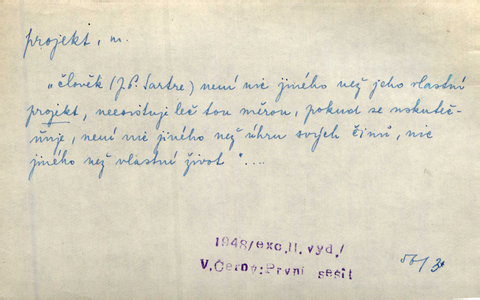 projekt, m.
„člověk (J. P. Sartre) není nic jiného než jeho vlastní
projekt, neexistuje leč tou měrou, pokud se uskuteč-
ňuje, není nic jiného než úhrn svých činů, nic
jiného než vlastní život"....
1948/exc.II.vyd./
V.Černý:První sešit
56/3